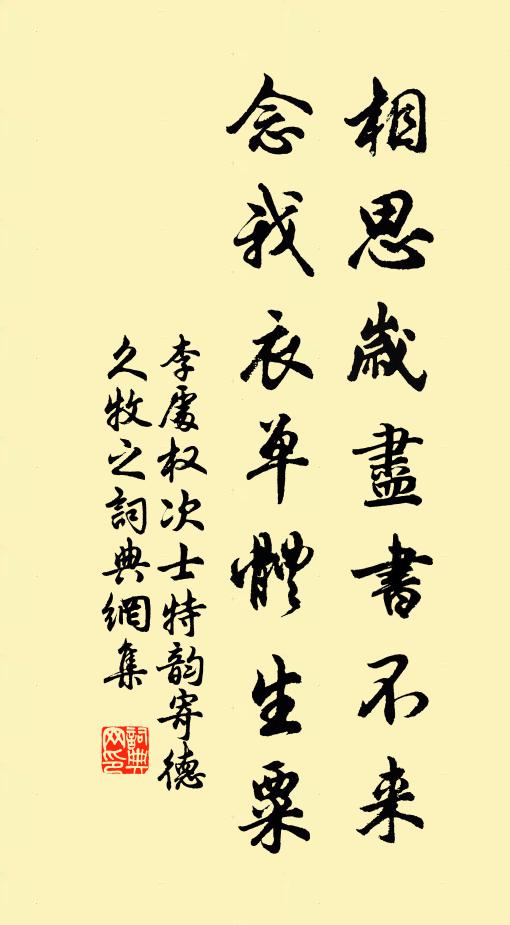 相思歲盡書不来
念我衣单體生粟
李處权次士特韵寄德
久牧之詞典網集
詞典网印